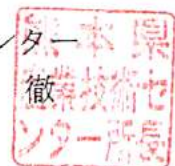 ンター
徹
熊本県
産業技術セ
ンター所長